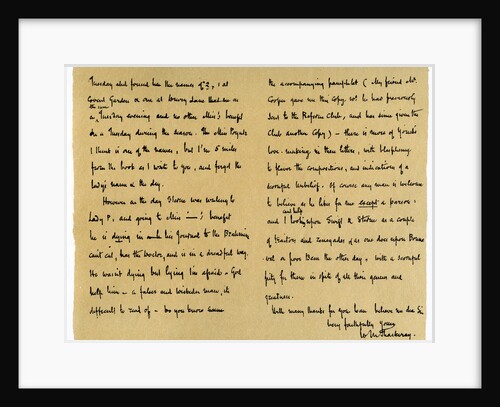 Tuesday and found him the names of 23, 1 at
Covent Garden or one at Drury Lane that on
the same
a Tuesday evening and no other Miss's benefit
on a Tuesday during the season. The Miss
I think is one of the names, but I'm 5 miles
from the book as I write to you, and forget the
lady's name & the day.
However on the day Sterne was writing to
Lady P. and going to Miss ——'s benefit
he is dying in his Journal to the Bramine
can't eat, has the Doctor, and is in a dreadful way.
He wasn't dying but lying I'm afraid — God
help him — a falser and wickeder man, it
difficult to read of — Do you know
the accompanying pamphlet (My friend Mr.
Cooper gave me this copy, wh. he had previously
sent to the Reform Club, and has since given the
Club another Copy) — there is more of Yorick's
love-making in these letters, with blasphemy
to flavor the compositions, and indications of a
scornful unbelief. Of course any man is welcome
to believe as he likes for me except a parson.
and I
help looking upon Swift & Sterne as a couple
of traitors and renegades (as one does upon
or poor Bem the other day), with a scornful
pity for them in spite of all their genius and
greatness.
With many thanks for your believe me dear Sir
Very faithfully Yours
W M Thackeray.